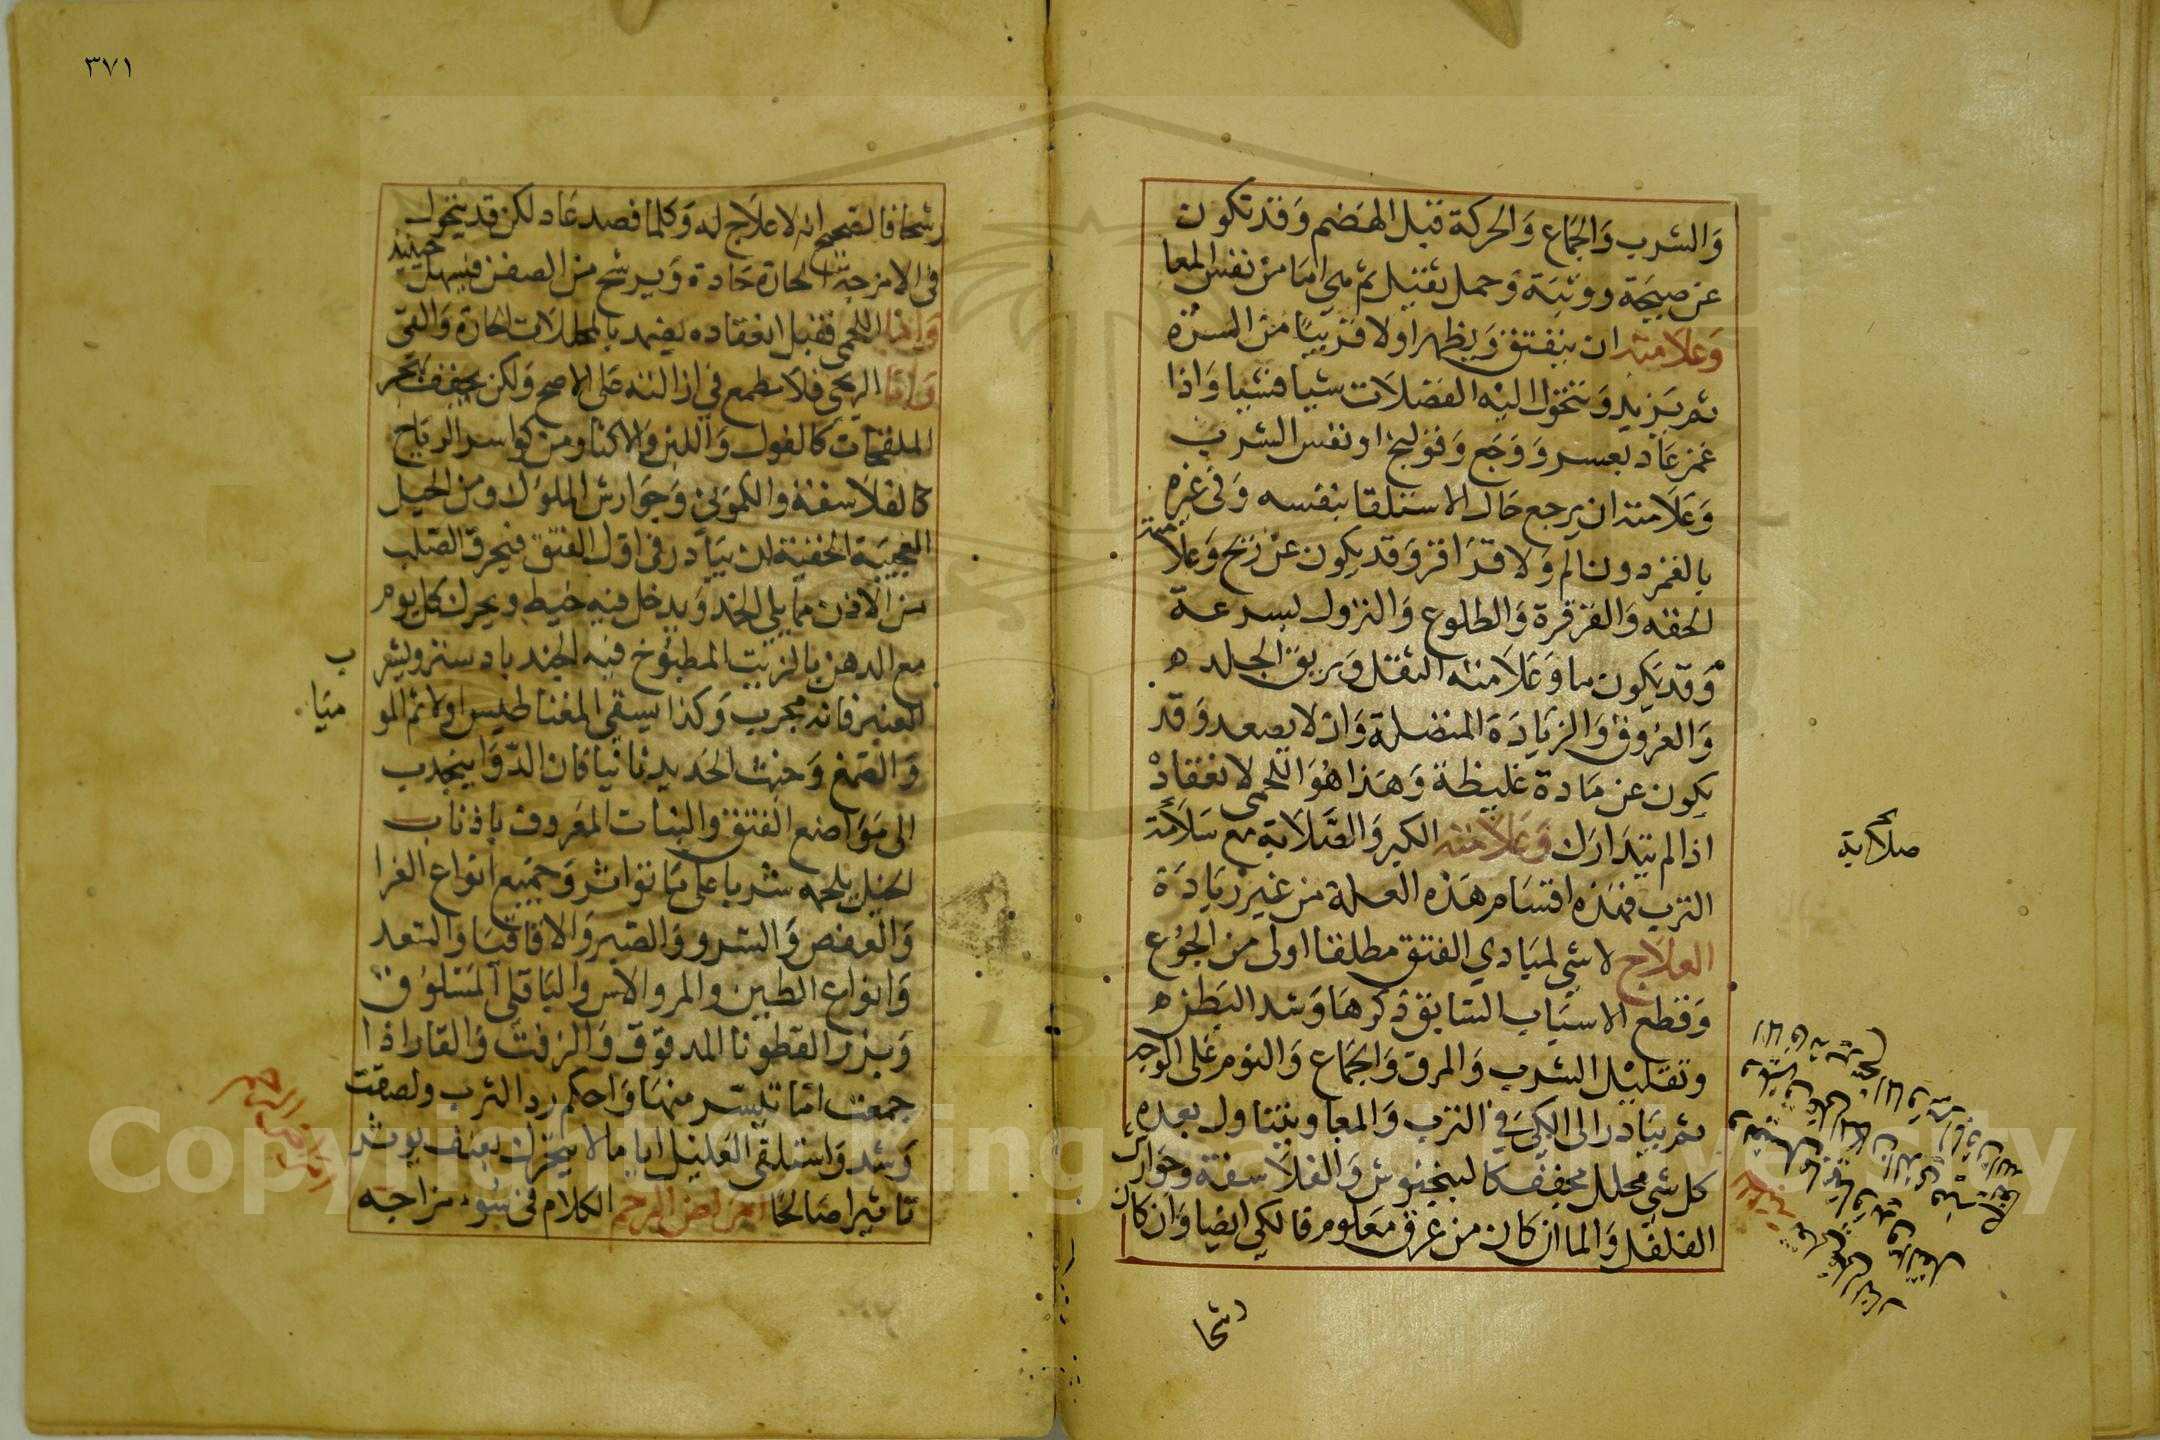 والشرب والجماع والحركة قبل الهضم وقد تكون
عن صيحة ووثبة وحمل ثقيل ثم هي اما من نفس المعا
وعلامته ان ينفتق ويظهر اولا قريبا من السرة
ثم يزيد وتتحول اليه الفضلات شيا فشيا واذا
غمز عاد بعسر ووجع وقولنج او نفس الثرب
وعلامته ان يرجع حال الاستلقا بنفسه وفي غيره
بالغمز دون الم ولا قراقر وقد يكون عن ريح وعلامته
الخفه والقرقرة والطلوع والنزول بسرعة
وقد يكون ما وعلامته الثقل وبريق الجلد ه
والعروق والزيادة المنضلة وان لا يصعد وقد
يكون عن مادة غليظة وهذا هو اللحمي لانعقاده
اذا لم يتدارك وعلامته الكبر والصلابة مع سلامة
الثرب فهذه اقسام هذه العلة من غير زيادة
العلاج لا شي لمبادي الفتق مطلقا اولى من الجوع
وقطع الاسباب السابق ذكرها وشد البطن ه
وتقليل الشرب والمرق والجماع والنوم على الوجه
ثم يبادر الى الكي في الثرب والمعا ويتناول بعده
كل شي محلل مجفف كالسنجنوش والفلاسفة وجوارش
الفلفل والما ان كان من عرق معلوم فالكي ايضا وان كان
رشحا
صلابة
٣٧١
رشحا فالصحيح انه لا علاج له وكلما فصد عاد لكن قد يتحول
في الامزجة الحارة حادة ويرشح من الصفن فيسهل حينيذ
واما اللحمي فقبل انعقاده يضمد بالمحللات الحارة والقي
واما الريحي فلا مطمع في ازالته على الاصح ولكن يجفف بهجر
المنفخات كالفول واللبن والاكثار من كواسر الرياح
كالفلاسفة والكموني وجوارش الملوك ومن الحيل
العجيبة الخفية ان يبادر في اول الفتق فيحرق الصلب
من الاذن مما يلي الخد ويدخل فيه خيط ويحرك كل يوم
مع الدهن بالزيت المطبوخ فيه الجند بادستر ويشر ب
العنبر فانه مجرب وكذا يسقي المغناطيس اولا ثم المو ميا
والصمغ وخبث الحديد ثانيا فان الدوا ينجذب
الى مواضع الفتق والنبات المعروف باذناب
الخيل يلحمه شربا على ما تواتر وجميع انواع الغرا
والعفص والسرو والصبر والاقاقيا والسعد
وانواع الطين والمر والاس والباقلى المسلوق
وبزر القطونا المدقوق والزفت والقار اذا
جمعت او ما تيسر منها واحكم رد الثرب ولصقت
وشد واستلقى العليل اياما لا يتحرك بعنف يوثر
تاثيرا صالحا امراض الرحم الكلام في سوء مزاجه
امراض الرحم